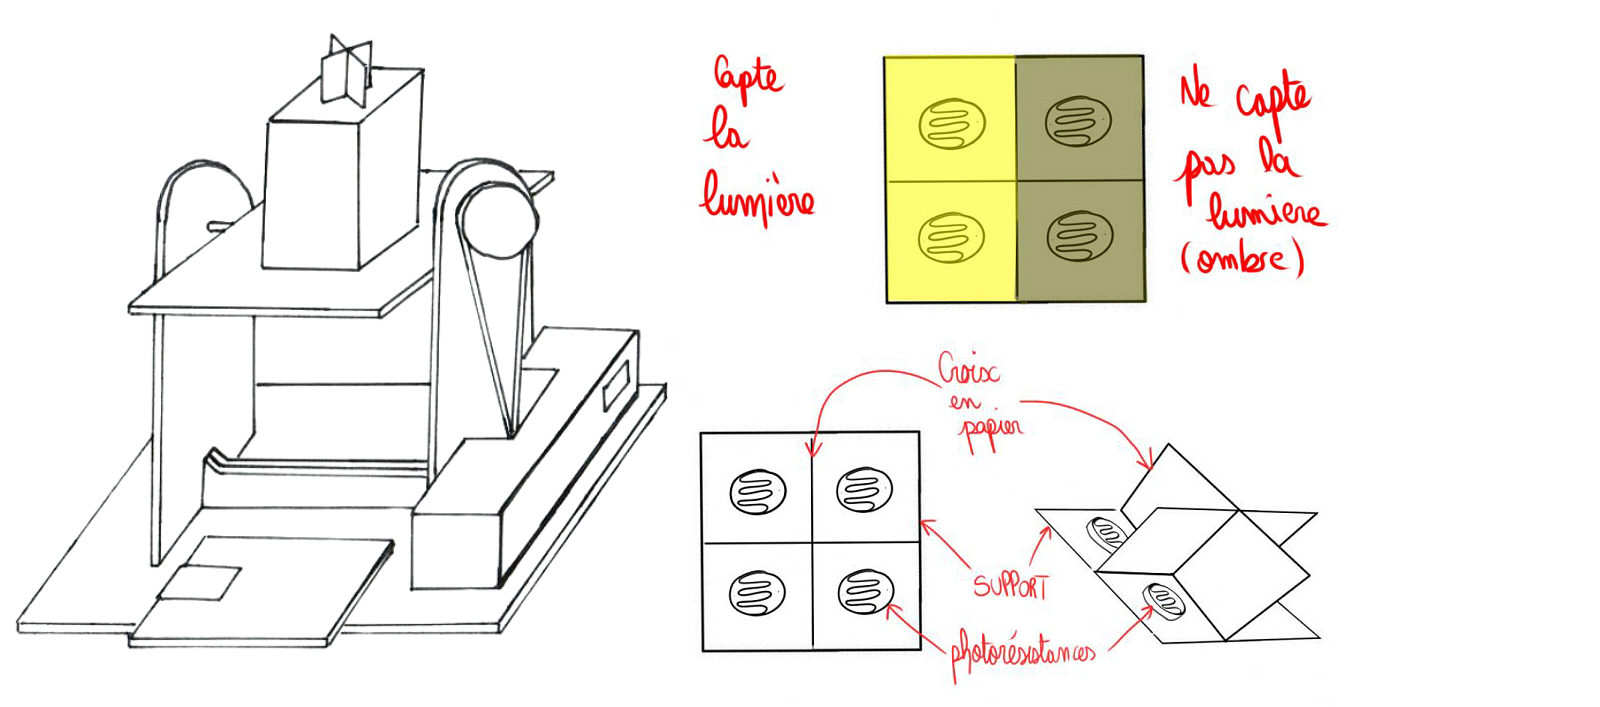 Capte
la
lumière
Ne capte
pas la
lumiere
(ombre)
Croix
en
papier
SUPPORT
photorésistances